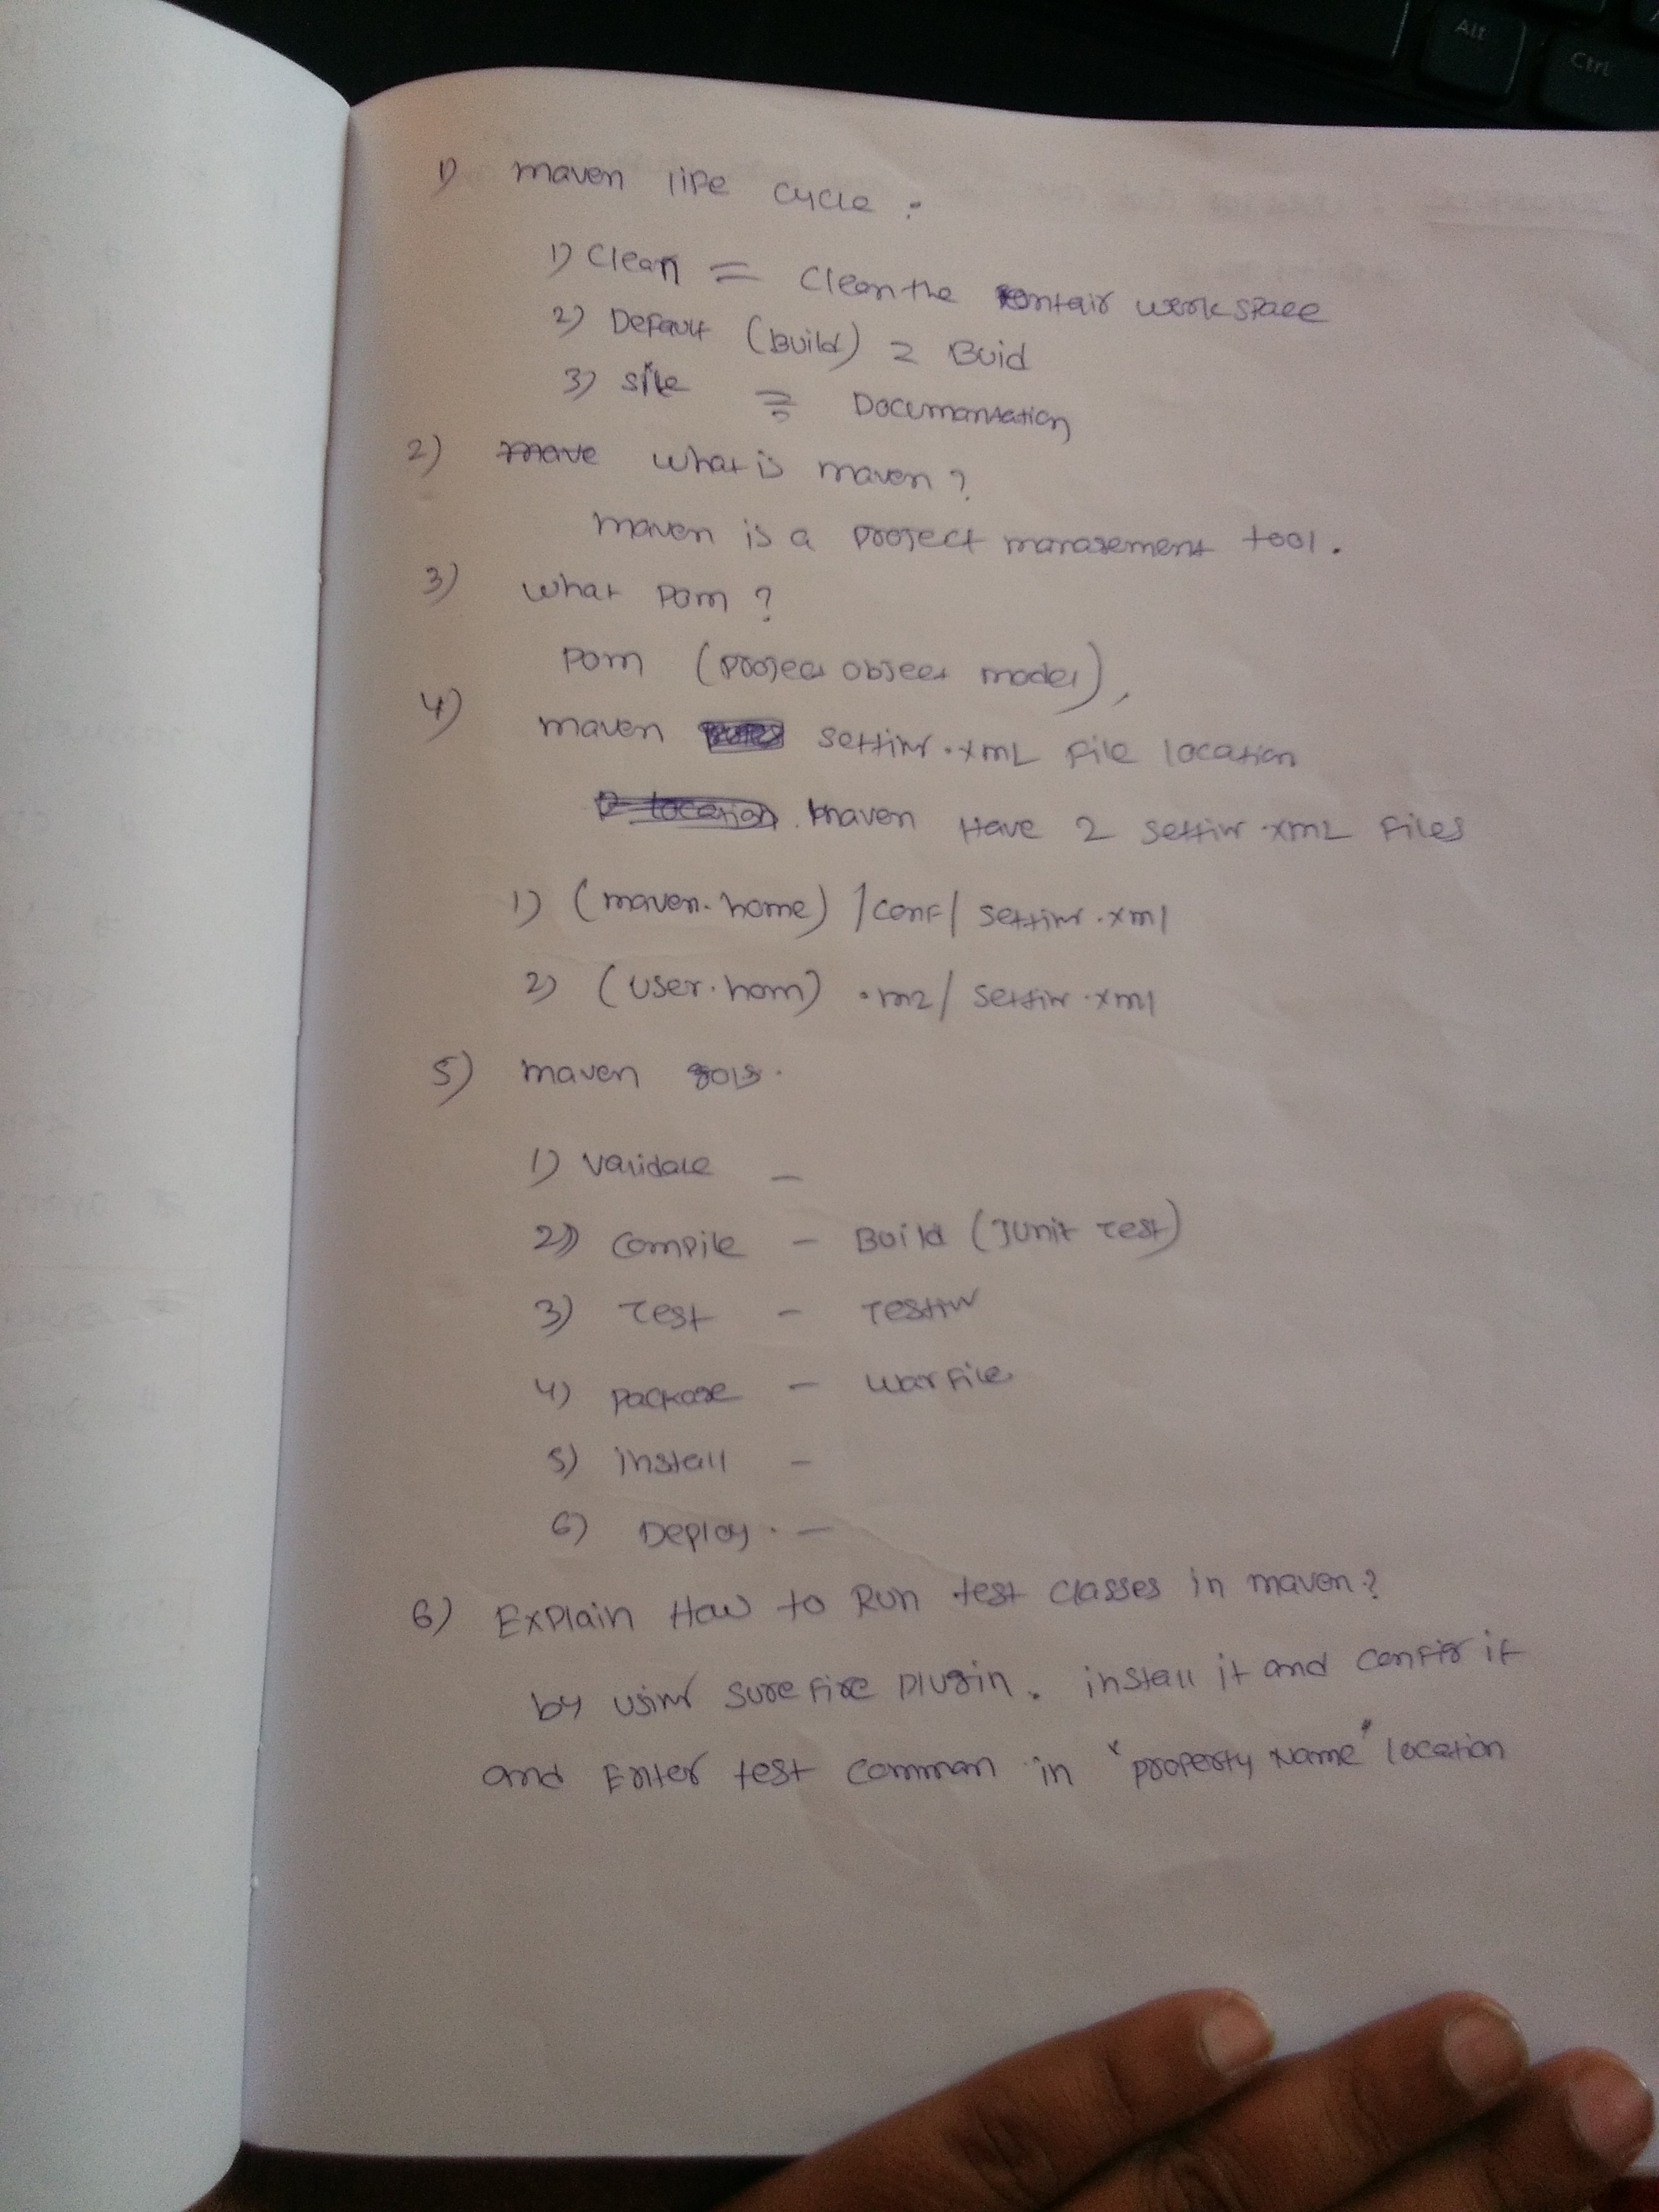 1) maven life cycle :
1) Clean = Clean the entair work space
2) Default (build) = Buid
3) site = Documantation
2) move what is maven ?
maven is a project management tool.
3) what pom ?
pom (project object model),
4) maven setting.xml file location
location maven Have 2 setting.xml files
1) (maven.home) /conf/ setting.xml
2) (user.hom) .m2/ setting.xml
5) maven gols.
1) validate -
2) compile - Build (Junit Test)
3) Test - Testing
4) package - war file
5) install -
6) Deploy. -
6) Explain How to Run test classes in maven?
by using surefire plugin. install it and config it
and Enter test comman in "property Name" location